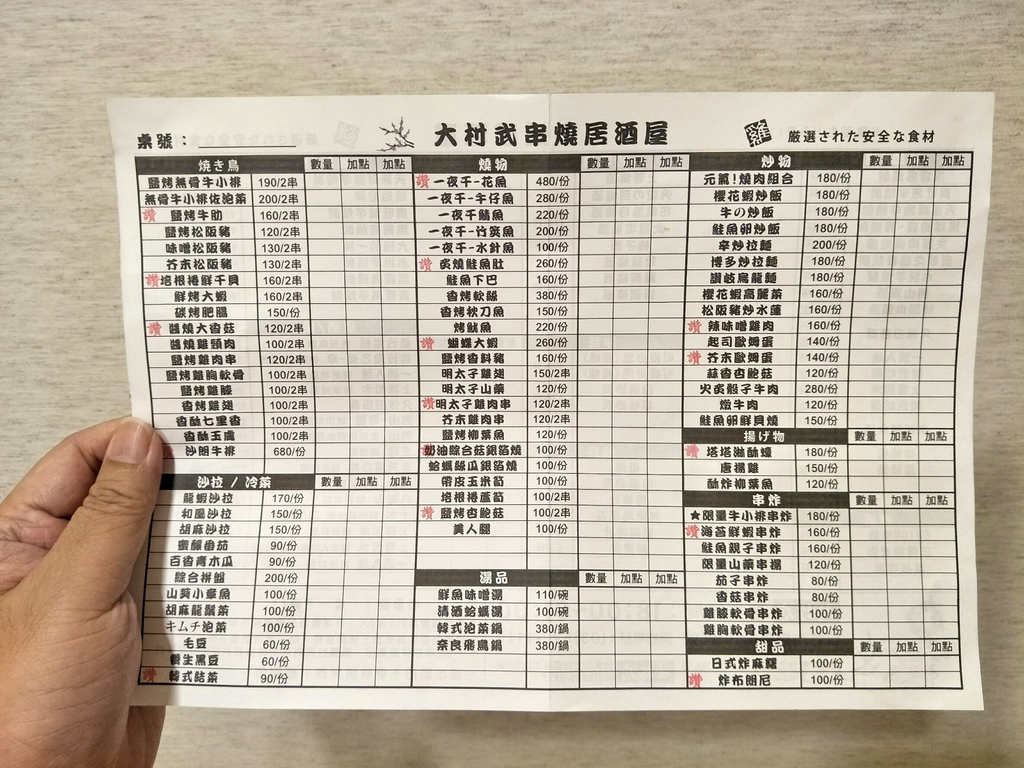 桌號：
大村武串燒居酒屋
雞
厳選された安全な食材
焼き鳥 數量 加點 加點
鹽烤無骨牛小排 190/2串
無骨牛小排佐泡菜 200/2串
讚 鹽烤牛肋 160/2串
鹽烤松阪豬 120/2串
味噌松阪豬 130/2串
芥末松阪豬 130/2串
讚 培根捲鮮干貝 160/2串
鮮烤大蝦 160/2串
碳烤肥腸 150/份
讚 醬燒大香菇 120/2串
醬燒雞頸肉 100/2串
鹽烤雞肉串 120/2串
鹽烤雞胸軟骨 100/2串
鹽烤雞膝 100/2串
香烤雞翅 100/2串
香酥七里香 100/2串
香酥玉處 100/2串
沙朗牛排 680/份
沙拉 / 冷菜 數量 加點 加點
龍蝦沙拉 170/份
和風沙拉 150/份
胡麻沙拉 150/份
蜜釀番茄 90/份
百香青木瓜 90/份
綜合拼盤 200/份
山葵小章魚 100/份
胡麻龍鬚菜 100/份
キムチ泡菜 100/份
毛豆 60/份
養生黑豆 60/份
讚 韓式話菜 90/份
燒物 數量 加點 加點
讚 一夜干-花魚 480/份
一夜干-午仔魚 280/份
一夜干鯖魚 220/份
一夜干-竹筴魚 200/份
一夜干-水針魚 100/份
讚 炙燒鮭魚肚 260/份
鮭魚下巴 160/份
香烤軟絲 380/份
香烤秋刀魚 150/份
烤魷魚 220/份
讚 蝴蝶大蝦 260/份
鹽烤香料豬 160/份
明太子雞翅 150/2串
明太子山藥 120/份
讚 明太子雞肉串 120/2串
芥末雞肉串 120/2串
鹽烤柳葉魚 120/份
奶油綜合菇銀箔燒 100/份
蛤蠣絲瓜銀箔燒 100/份
帶皮玉米筍 100/份
培根捲蘆筍 100/2串
讚 鹽烤杏鮑菇 100/2串
美人腿 100/份
湯品 數量 加點 加點
鮮魚味噌湯 110/碗
清酒蛤蠣湯 100/份
韓式泡菜鍋 380/鍋
奈良飛鳥鍋 380/鍋
炒物 數量 加點 加點
元氣!燒肉組合 180/份
櫻花蝦炒飯 180/份
牛の炒飯 180/份
鮭魚卵炒飯 180/份
辛炒拉麵 200/份
博多炒拉麵 180/份
讚岐烏龍麵 180/份
櫻花蝦高麗菜 160/份
松阪豬炒水蓮 160/份
讚 辣味噌雞肉 160/份
起司歐姆蛋 140/份
讚 芥末歐姆蛋 140/份
蒜香杏鮑菇 120/份
火炙骰子牛肉 280/份
燉牛肉 120/份
鮭魚卵鮮貝燒 150/份
揚げ物 數量 加點 加點
讚 塔塔淋酥蠔 180/份
唐揚雞 150/份
酥炸柳葉魚 120/份
串炸 數量 加點 加點
★限量牛小排串炸 180/份
讚 海苔鮮蝦串炸 160/份
鮭魚親子串炸 160/份
限量山藥串揚 120/份
茄子串炸 80/份
香菇串炸 80/份
雞膝軟骨串炸 100/份
雞胸軟骨串炸 100/份
甜品 數量 加點 加點
日式炸麻糬 100/份
讚 炸布朗尼 100/份